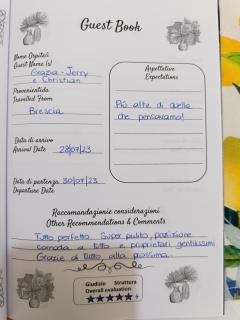 Guest Book
Nome Ospite/i
Guest Name (s)
Grazia - Jerry
e Christian
Provenienti da
Travelled From
Brescia
Aspettative
Expectations
Più alte di quelle
che pensavamo!
Data di arrivo
Arrival Date 28/07/23
Data di partenza 30/07/23
Departure Date
Raccomandazionie considerazioni
Other Recommendations & Comments
Tutto perfetto. Super pulito, posizione
comoda a tutto e proprietari gentilissimi
Grazie di tutto alla prossima.
Giudizio Struttura
Overall evaluation